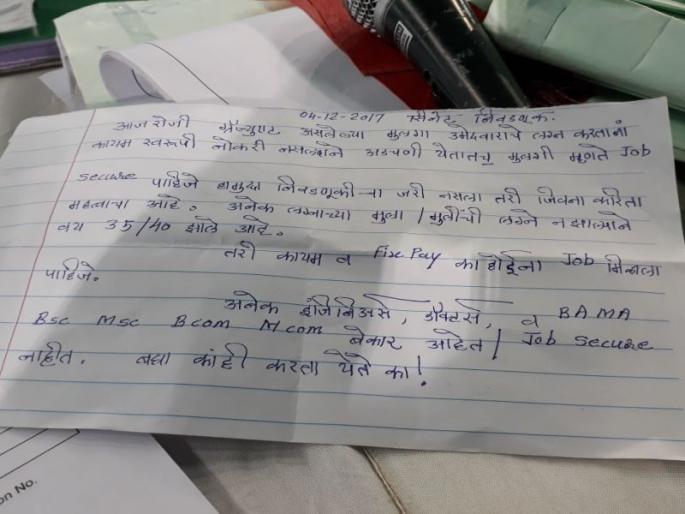 04-12-2017 सिनेट निवडणूक.
आज रोजी ग्रॅज्युएट असलेल्या मुलगा उमेदवाराचे लग्न करताना
कायम स्वरूपी नोकरी नसल्याने अडचणी येतातच मुलगी म्हणते Job
secure पाहिजे हा मुद्दा निवडणूकीचा जरी नसला तरी जिवना करिता
महत्वाचा आहे. अनेक लग्नाच्या मुला / मुलींची लग्ने न झाल्याने
वय 35/40 झाले आहे.
तरी कायम व Fixe Pay का होईना Job मिळाला
पाहिजे.
अनेक इंजिनिअर्स, डॉक्टर्स, व BA MA
Bsc Msc Bcom M.com बेकार आहेत / Job secure
नाहीत. बघा कांही करता येते का!
on No.